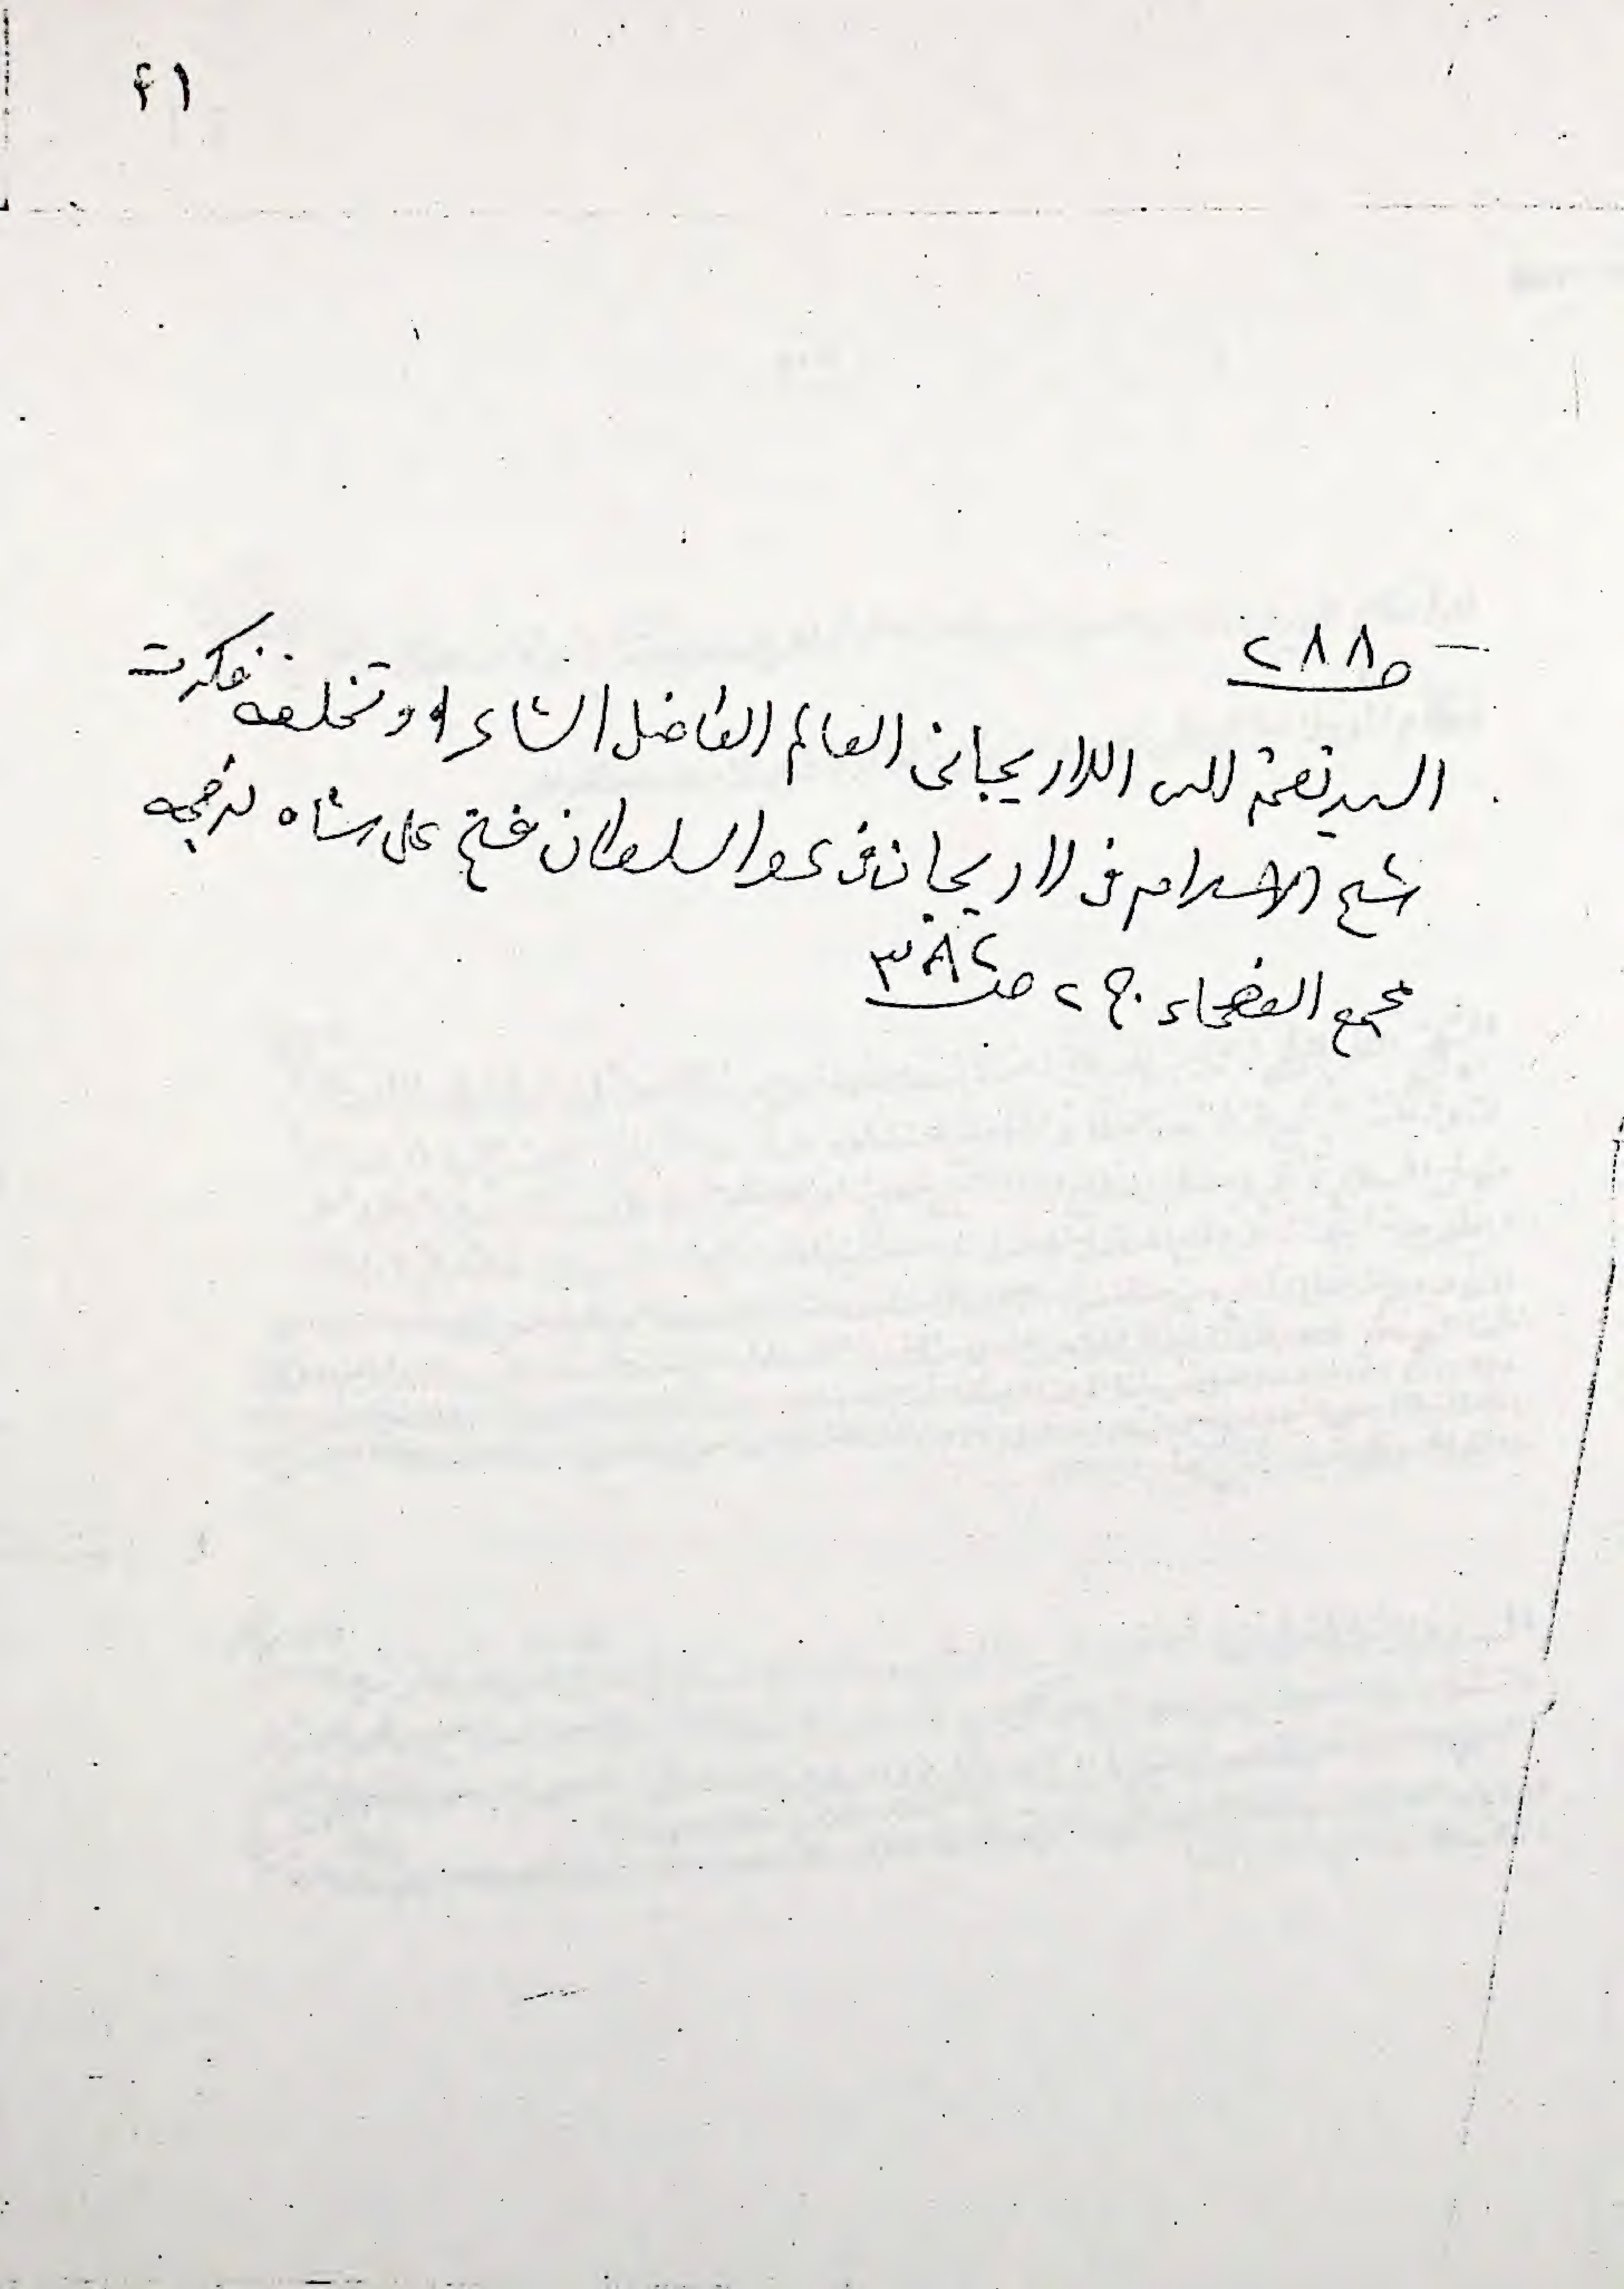 ۴۱
— ص ۲۸۸
السيد نعمة الله اللاريجاني العالم الفاضل الشاعر وتخلصه فكرت
شيخ الاسلام في لاريجان في عصر السلطان فتح على شاه ترجمه
مجمع الفصحاء ج ۲ ص ۳۸۲